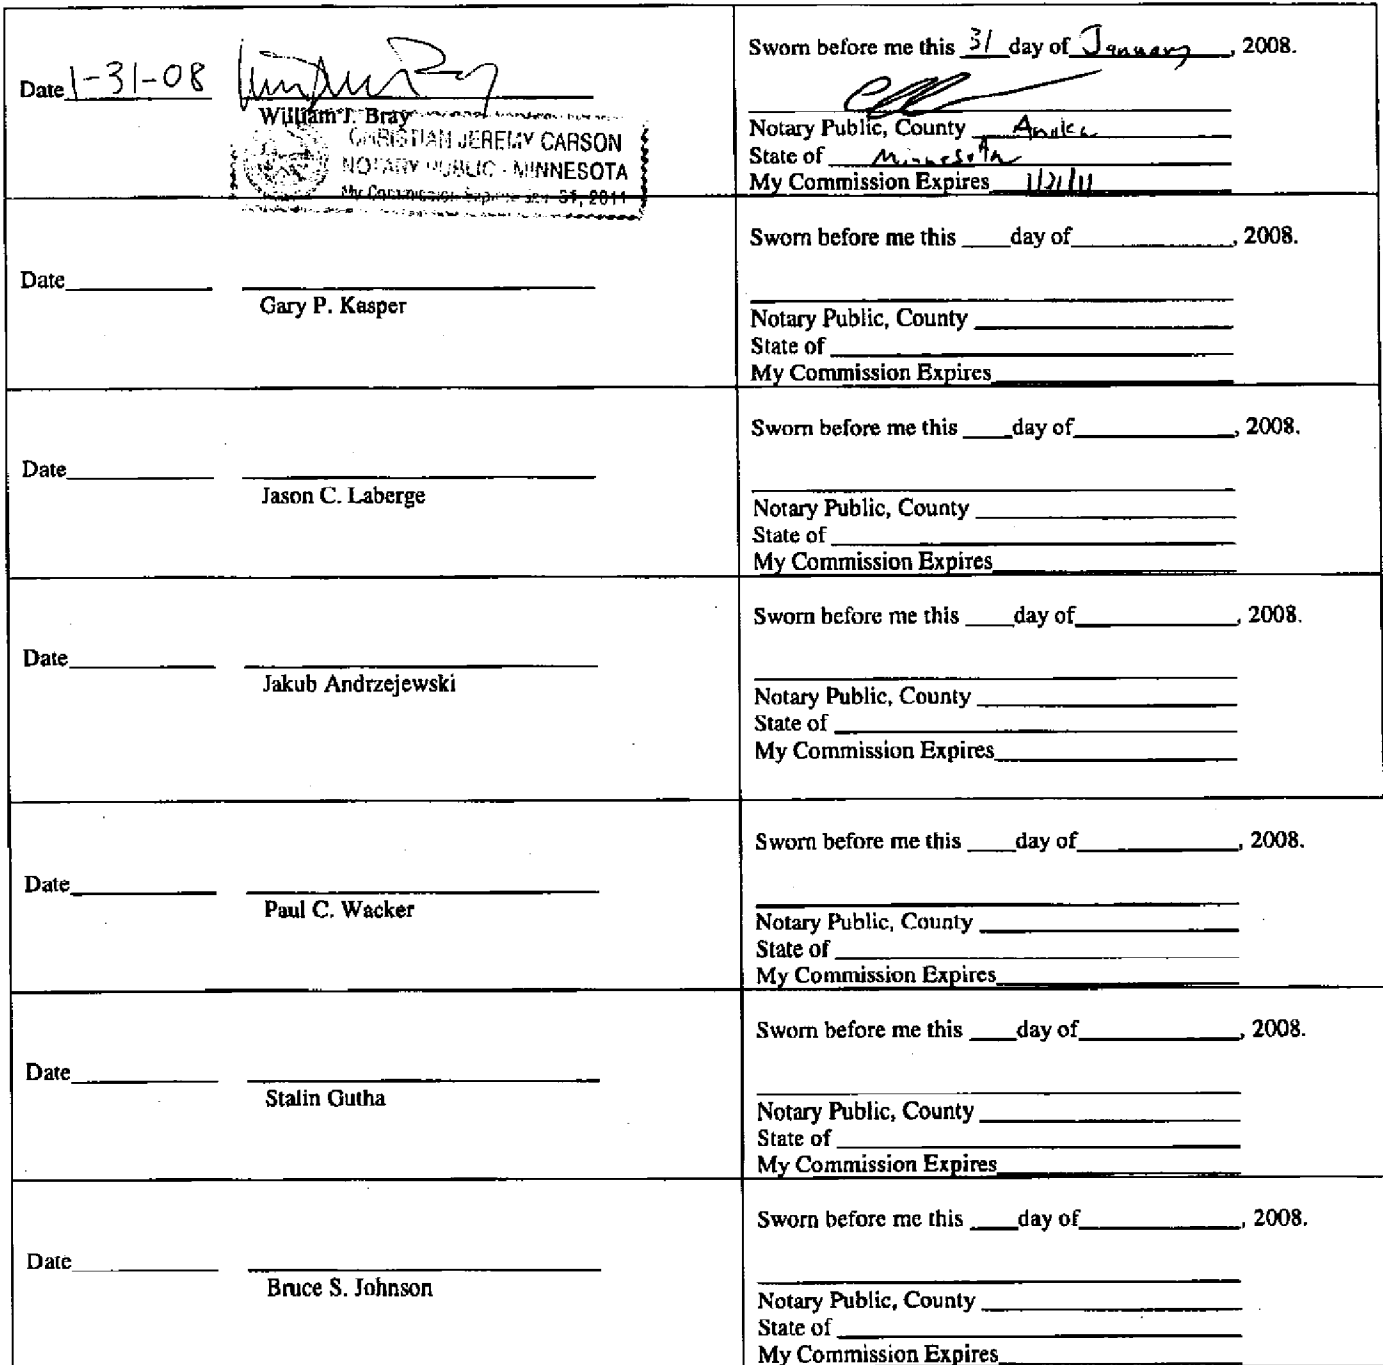 Date 1-31-08
William J. Bray
CHRISTIAN JEREMY CARSON
NOTARY PUBLIC - MINNESOTA
My Commission Expires Jan. 31, 2011
Sworn before me this 31 day of January, 2008.
Notary Public, County Anoka
State of Minnesota
My Commission Expires 1/31/11
Date
Gary P. Kasper
Sworn before me this ____day of____________, 2008.
Notary Public, County
State of
My Commission Expires
Date
Jason C. Laberge
Sworn before me this ____day of____________, 2008.
Notary Public, County
State of
My Commission Expires
Date
Jakub Andrzejewski
Sworn before me this ____day of____________, 2008.
Notary Public, County
State of
My Commission Expires
Date
Paul C. Wacker
Sworn before me this ____day of____________, 2008.
Notary Public, County
State of
My Commission Expires
Date
Stalin Gutha
Sworn before me this ____day of____________, 2008.
Notary Public, County
State of
My Commission Expires
Date
Bruce S. Johnson
Sworn before me this ____day of____________, 2008.
Notary Public, County
State of
My Commission Expires